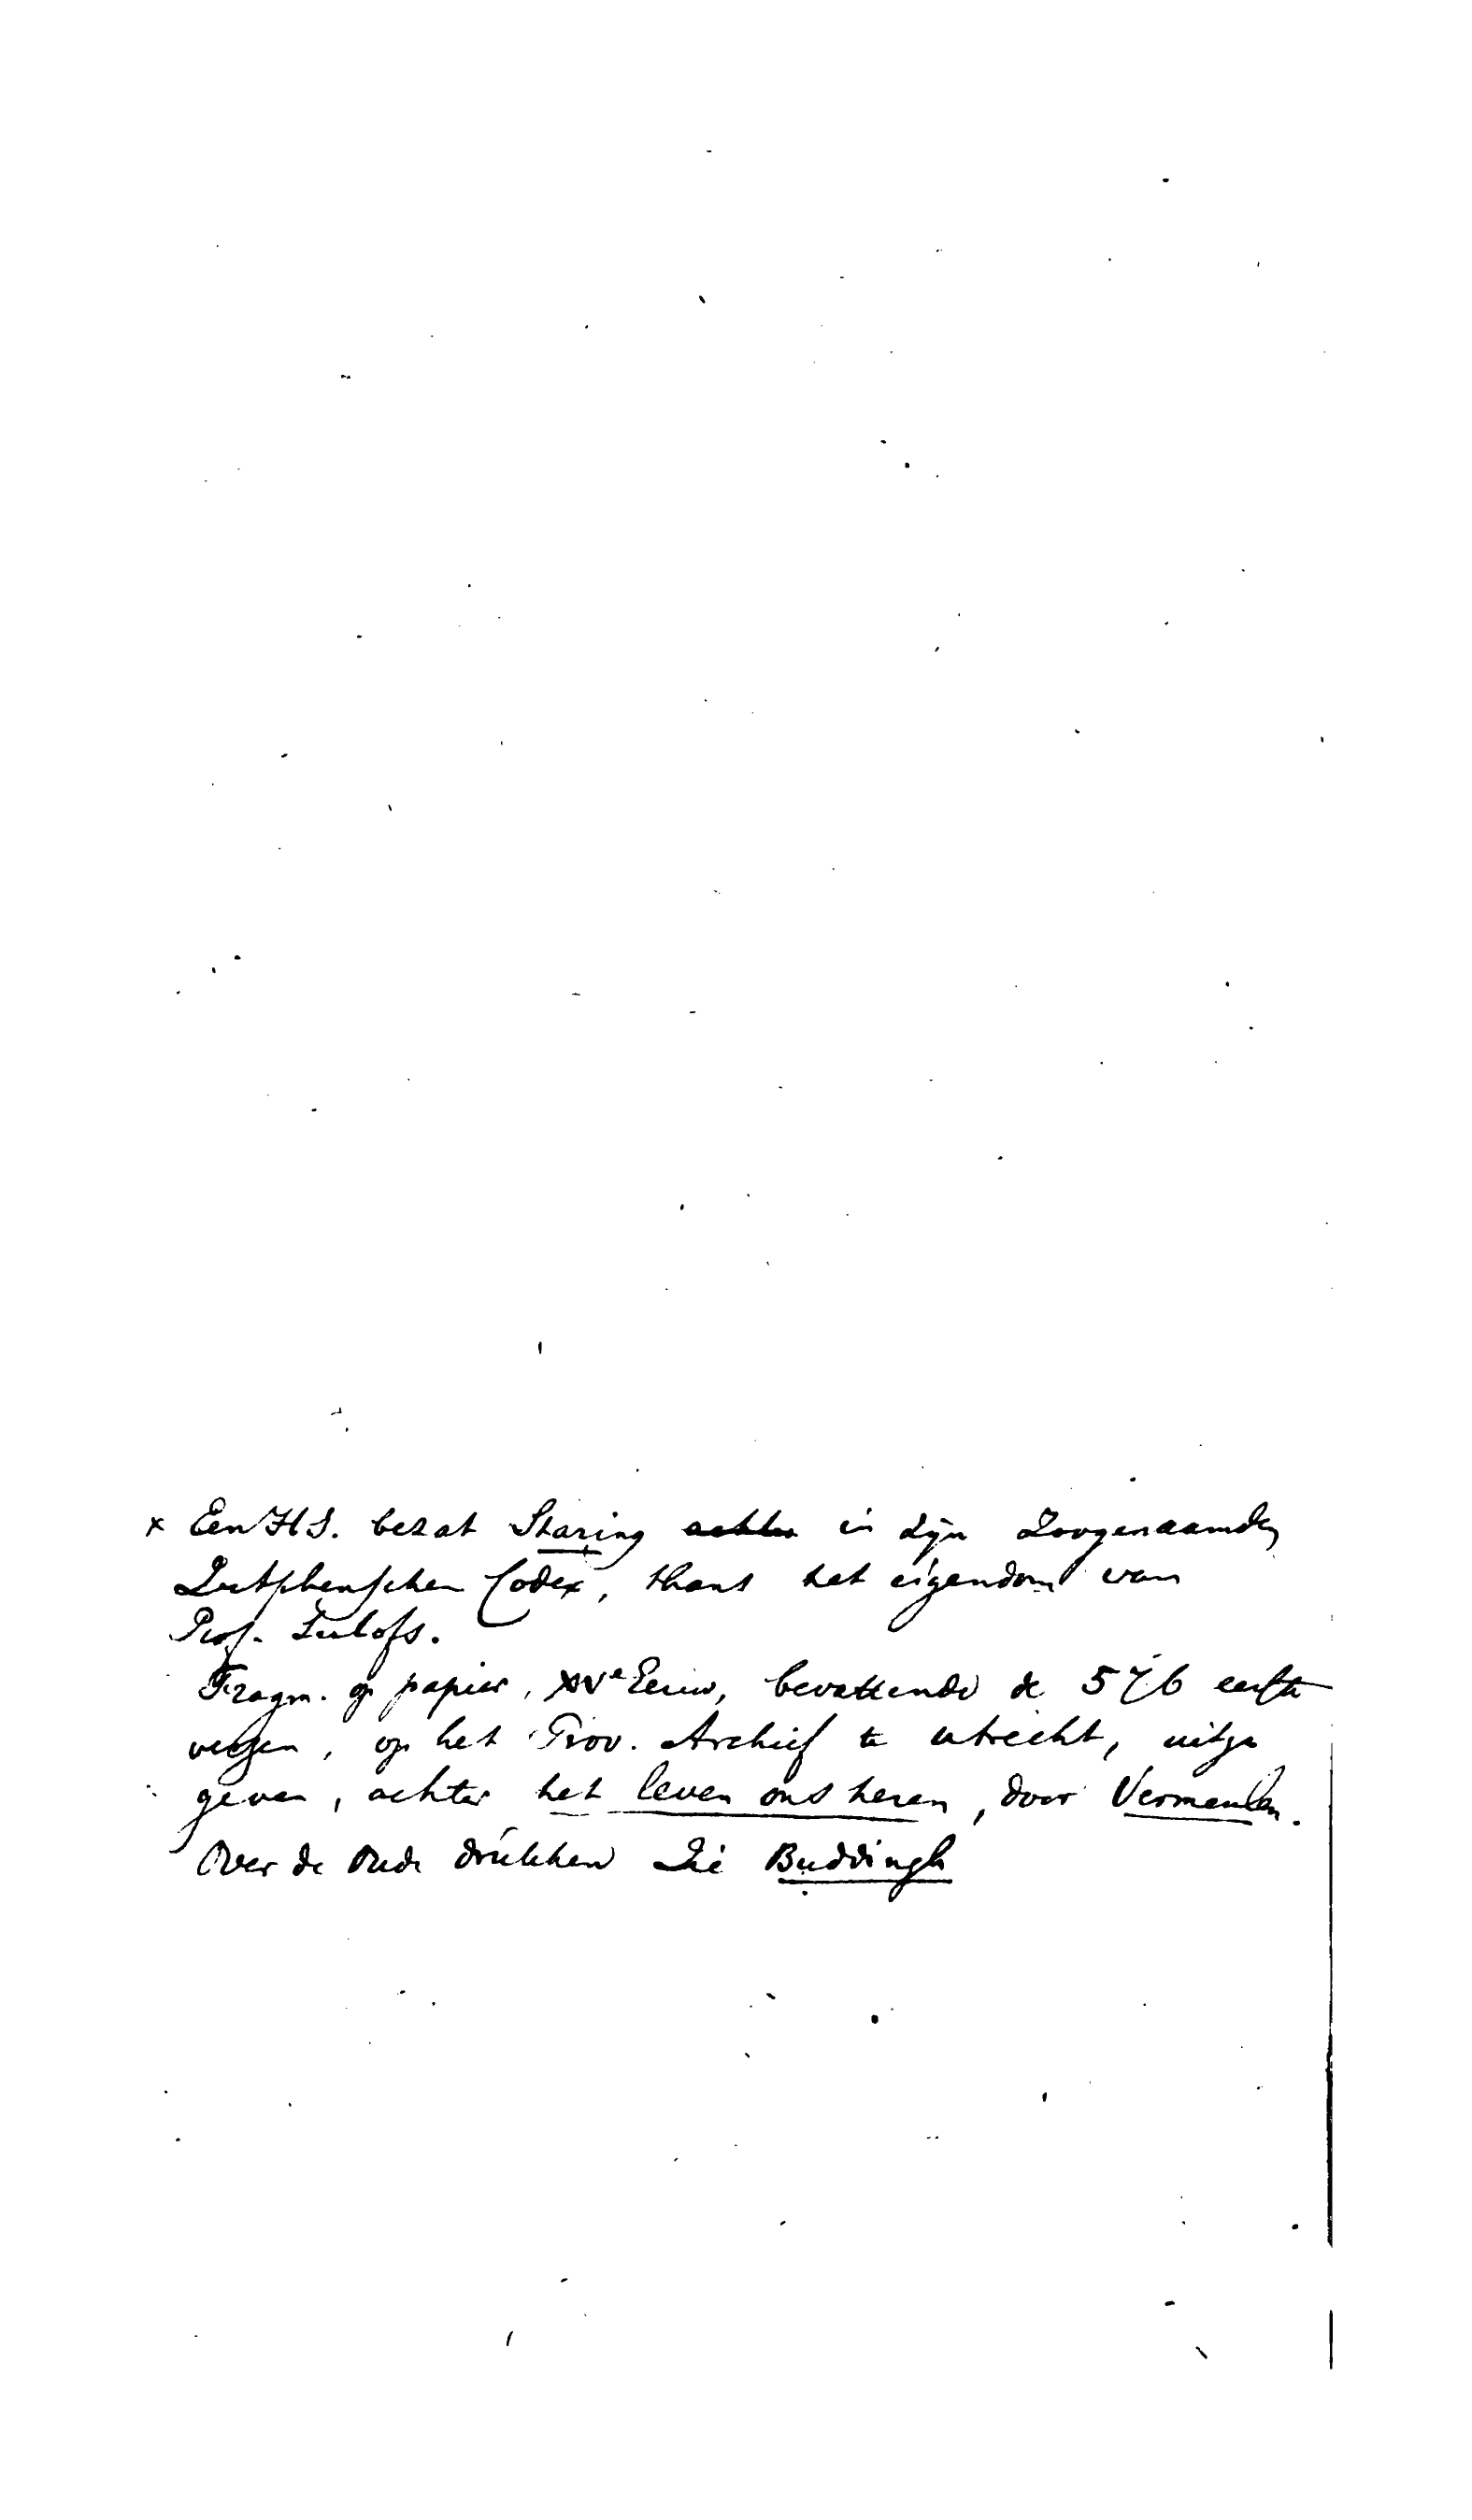 × Een HS. bezat Staring achter in zijn zoogenaamden
Zutphenschen Codex, thans het eigendom van
Prof. Lulofs.
Fragm. op papier, XVe Eeuw, bevattende de 576 eerste
verzen, op het Prov. Archief te Utrecht, uitge
geven, achter het leven ons heren, door Vermeulen.
Over de oude drukken zie Buddingh